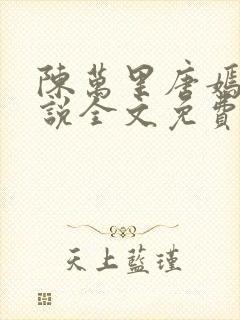 陳萬里唐嫣
說全文免費
天上藍瑾